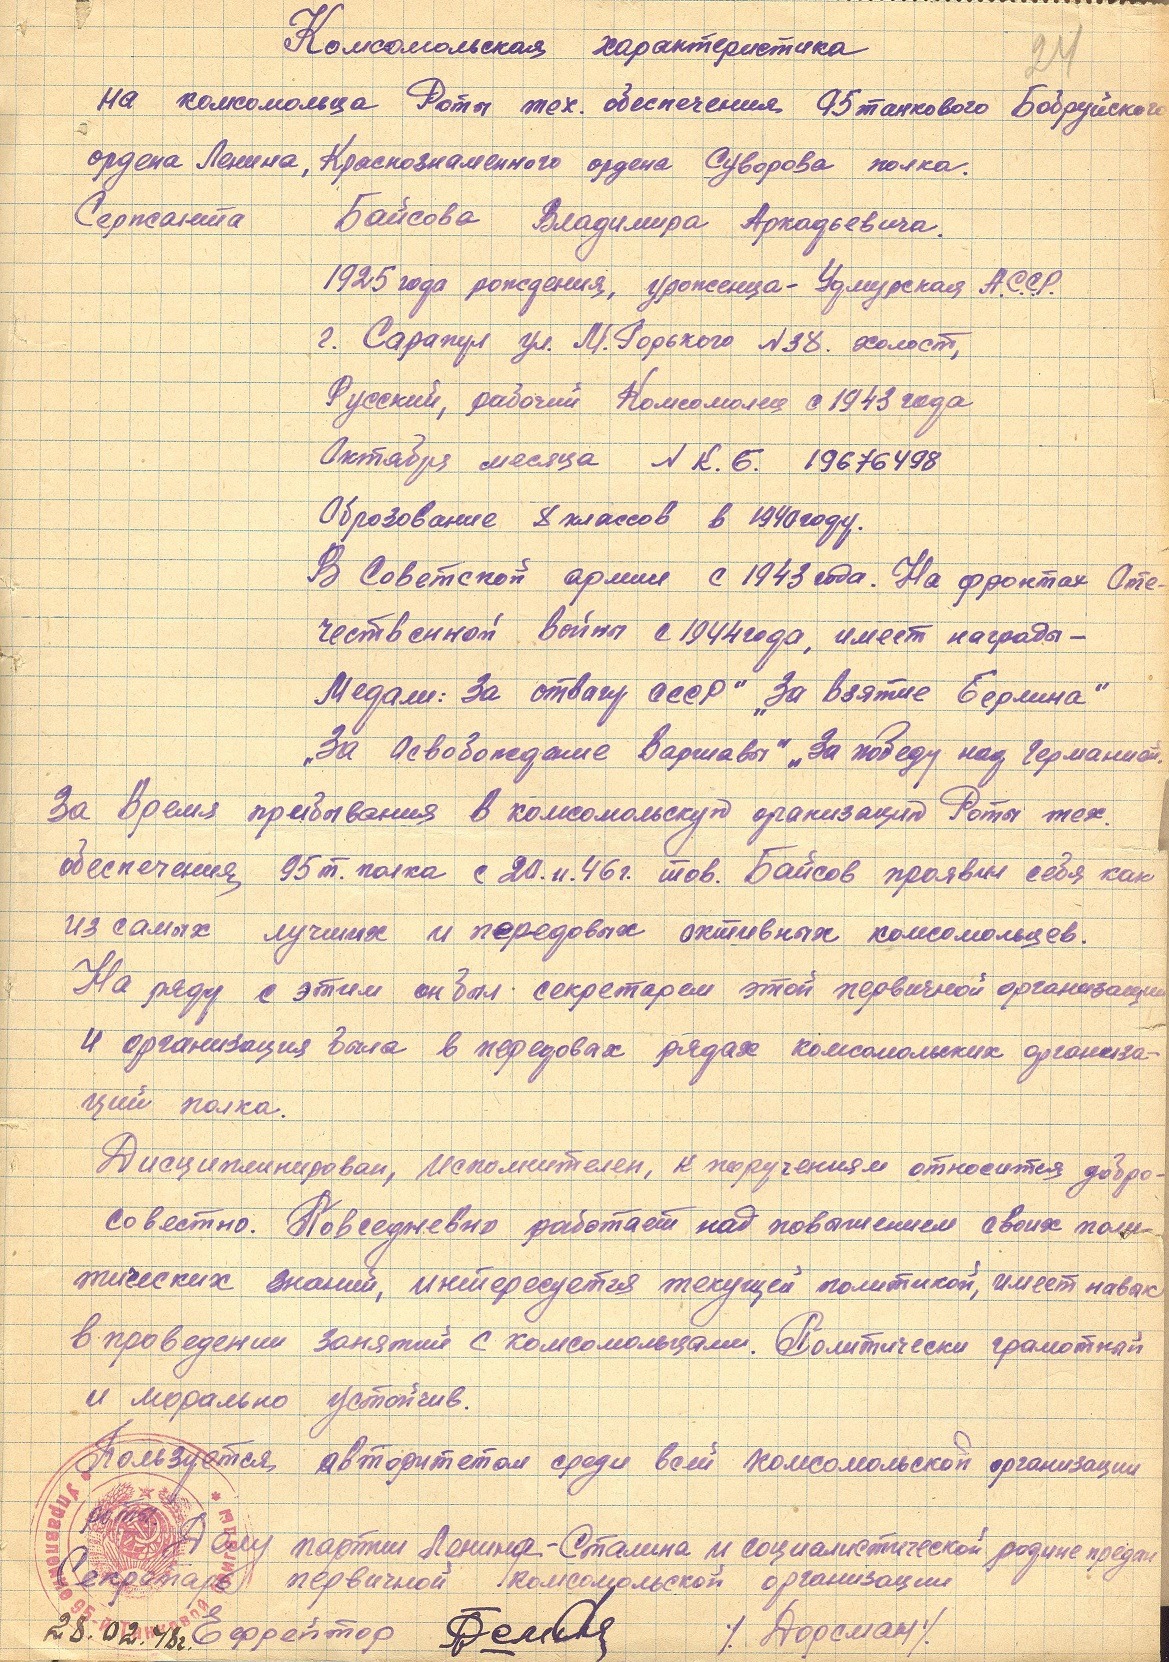 24
Комсомольская характеристика
на комсомольца Роты тех. обеспечения 95 танкового Бобруйского
ордена Ленина, Краснознаменного ордена Суворова полка.
Сержанта Байсова Владимира Аркадьевича.
1925 года рождения, уроженца - Удмурская А.С.С.Р.
г. Сарапул ул. М. Горького N 38. холост,
Русский, рабочий Комсомолец с 1943 года
Октября месяца N К. Б. 19676498
Оброзование 8 классов в 1940 году.
В Советской армии с 1943 года. На фронтах Оте-
чественной войны с 1944 года, имеет награды -
Медали: За отвагу СССР" „За взятие Берлина"
„За Освобождение Варшавы" „За победу над Германией.
За время пребывания в комсомольскую организацию Роты тех.
обеспечения 95 т. полка с 20.II.46 г. тов. Байсов проявил себя как
из самых лучших и передовых активных комсомольцев.
На ряду с этим он был секретарем этой первичной организации
и организация была в передовах рядах комсомольских организа-
ций полка.
Дисциплинирован, исполнителен, к поручениям относится добро-
совестно. Повседневно работает над повышением своих поли-
тических знаний, интересуется текущей политикой, имеет навык
в проведении занятий с комсомольцами. Политически грамотный
и морально устойчив.
Пользуется авторитетом среди всей комсомольской организации
роты.
Делу партии Ленина-Сталина и социалистической родине предан
Секретарь первичной комсомольской организации
28.02.48г. Ефрейтор /Дорсман/
Управление 95-й Танковой